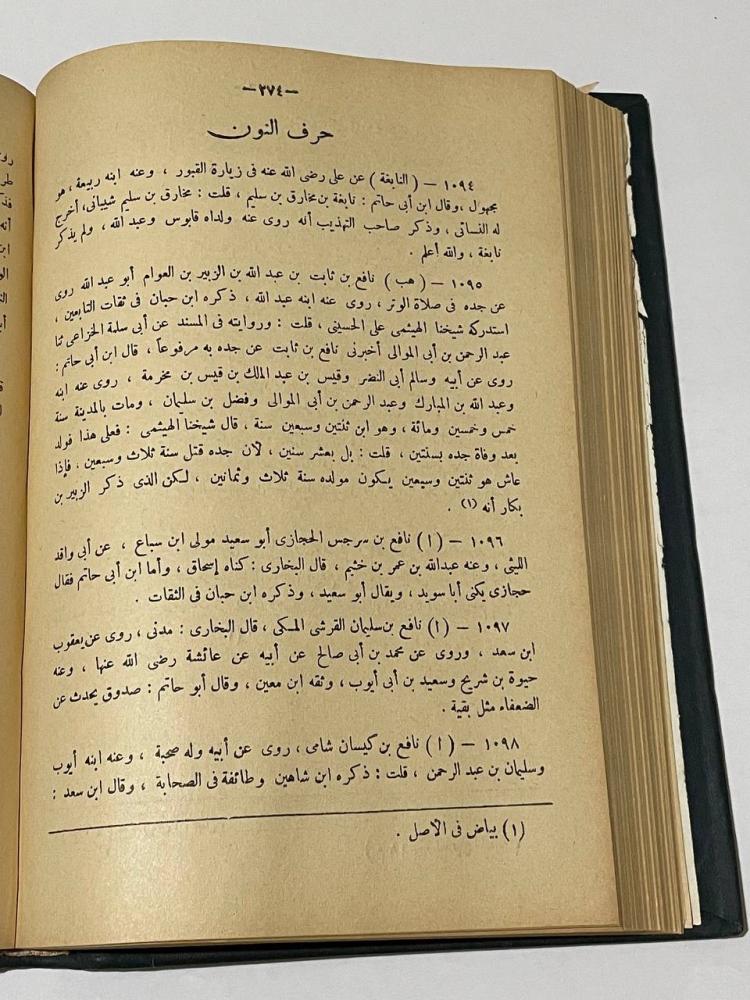 —٢٧٤—
حرف النون
١٠٩٤ — (النابغة) عن على رضى الله عنه فى زيارة القبور ، وعنه ابنه ربيعة ، هو
مجهول ، وقال ابن أبى حاتم : نابغة بن مخارق بن سليم ، قلت : مخارق بن سليم شيبانى، أخرج
له النسائى ، وذكر صاحب التهذيب أنه روى عنه ولداه قابوس وعبد الله ، ولم يذكر
نابغة ، والله أعلم .
١٠٩٥ — (هب) نافع بن ثابت بن عبد الله بن الزبير بن العوام أبو عبد الله روى
عن جده فى صلاة الوتر ، روى عنه ابنه عبد الله ، ذكره ابن حبان فى ثقات التابعين ،
استدركه شيخنا الهيثمى على الحسينى ، قلت : وروايته فى المسند عن أبى سلمة الخزاعى ثنا
عبد الرحمن بن أبى الموالى أخبرنى نافع بن ثابت عن جده به مرفوعاً ، قال ابن أبى حاتم :
روى عن أبيه وسالم أبى النضر وقيس بن عبد الملك بن قيس بن مخرمة ، روى عنه ابنه
وعبد الله بن المبارك وعبد الرحمن بن أبى الموالى وفضل بن سليمان ، ومات بالمدينة سنة
خمس وخمسين ومائة ، وهو ابن ثنتين وسبعين سنة ، قال شيخنا الهيثمى : فعلى هذا فولد
بعد وفاة جده بسنتين ، قلت : بل بعشر سنين ، لان جده قتل سنة ثلاث وسبعين ، فإذا
عاش هو ثنتين وسبعين يكون مولده سنة ثلاث وثمانين ، لكن الذى ذكر الزبير بن
بكار أنه (١) .
١٠٩٦ — (ا) نافع بن سرجس الحجازى أبو سعيد مولى ابن سباع ، عن أبى واقد
الليثى ، وعنه عبدالله بن عمر بن خثيم ، قال البخارى : كناه إسحاق ، وأما ابن أبى حاتم فقال
حجازى يكنى أبا سويد ، ويقال أبو سعيد ، وذكره ابن حبان فى الثقات .
١٠٩٧ — (ا) نافع بن سليمان القرشى المكى ، قال البخارى : مدنى ، روى عن يعقوب
ابن سعد ، وروى عن محمد بن أبى صالح عن أبيه عن عائشة رضى الله عنها ، وعنه
حيوة بن شريح وسعيد بن أبى أيوب ، وثقه ابن معين ، وقال أبو حاتم : صدوق يحدث عن
الضعفاء مثل بقية .
١٠٩٨ — (ا) نافع بن كيسان شامى ، روى عن أبيه وله صحبة ، وعنه ابنه أيوب
وسليمان بن عبد الرحمن ، قلت : ذكره ابن شاهين وطائفة فى الصحابة ، وقال ابن سعد :
(١) بياض فى الاصل .